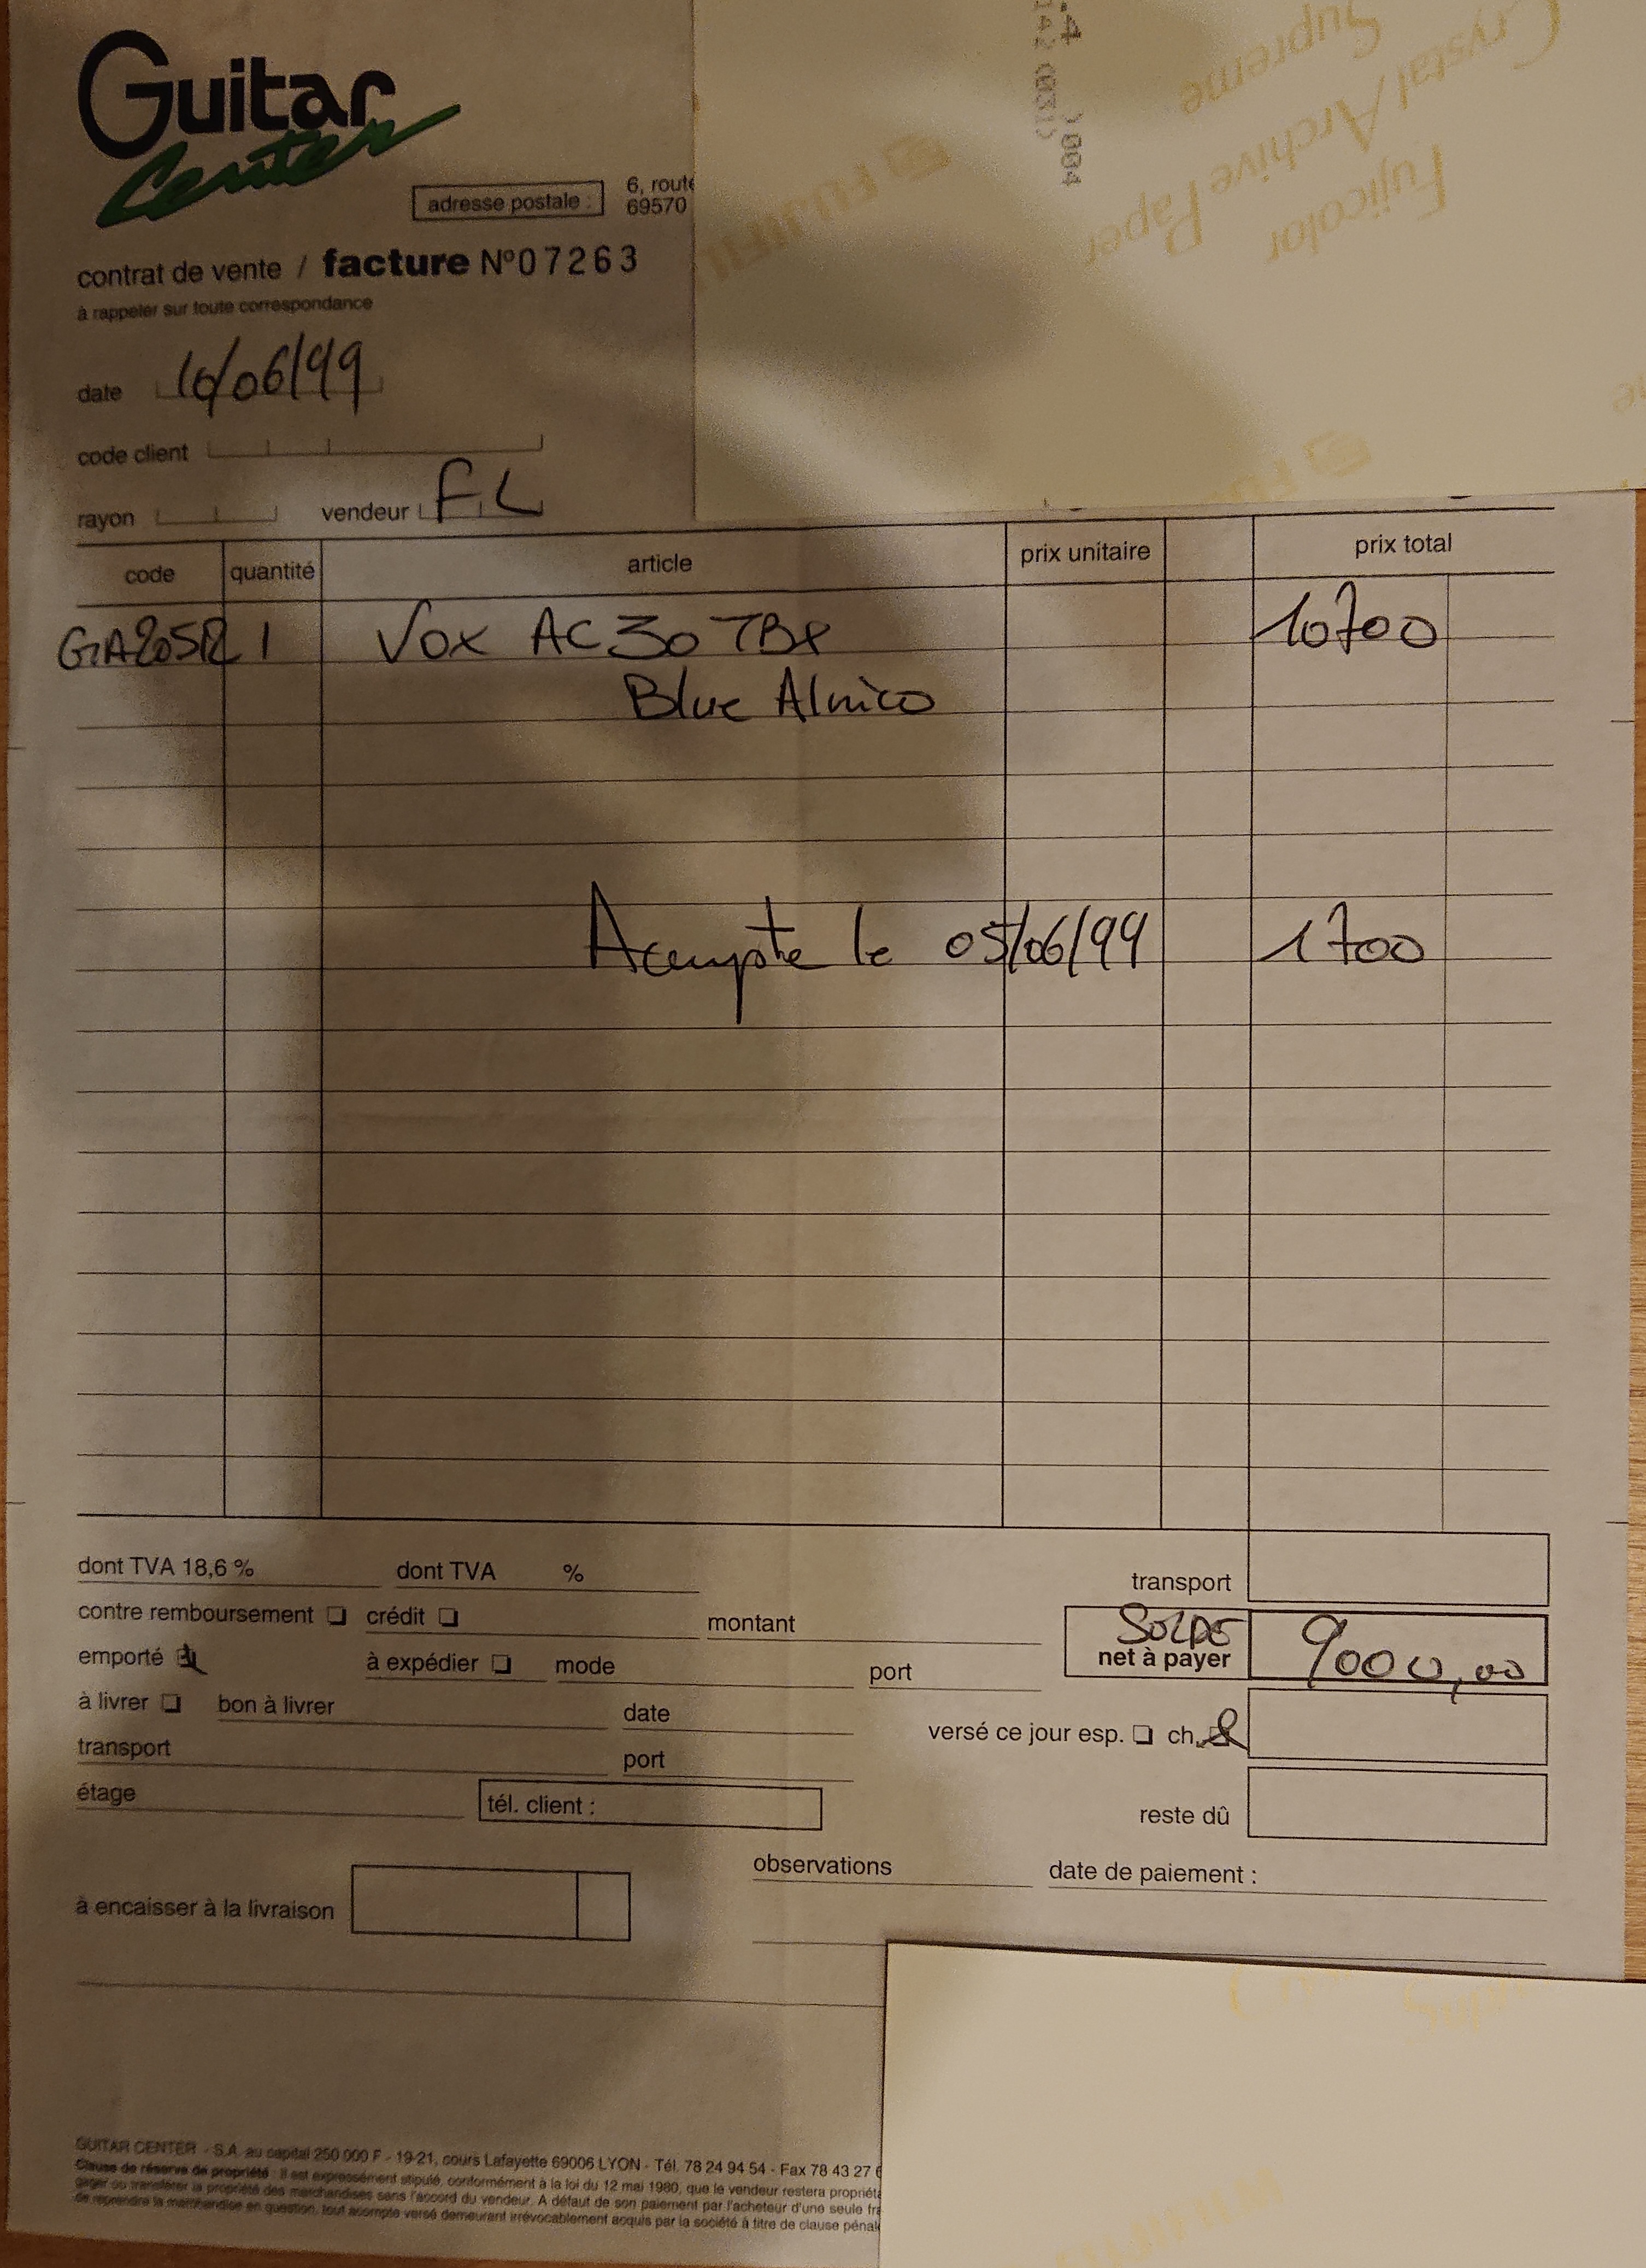 Guitar
Center
adresse postale :
6, route
69570
contrat de vente / facture N°07263
à rappeler sur toute correspondance
date 10/06/99
code client
rayon vendeur FL
code quantité article prix unitaire prix total
1 Vox AC30 TBX 10700
Blue Alnico
Acompte le 05/06/99 1700
dont TVA 18,6 % dont TVA % transport
contre remboursement crédit montant
SOLDE
net à payer 9000,00
emporté à expédier mode port
à livrer bon à livrer date
versé ce jour esp. ch.
transport port
étage tél. client :
reste dû
observations date de paiement :
à encaisser à la livraison
GUITAR CENTER - S.A. au capital 250 000 F - 19-21, cours Lafayette 69006 LYON - Tél. 78 24 94 54 - Fax 78 43 27
Clause de réserve de propriété : Il est expressément stipulé, conformément à la loi du 12 mai 1980, que le vendeur restera propriét
gager ou transférer la propriété des marchandises sans l'accord du vendeur. A défaut de son paiement par l'acheteur d'une seule fra
de reprendre la marchandise en question, tout acompte versé demeurant irrévocablement acquis par la société à titre de clause pénal
Fujicolor
Crystal Archive Paper
Supreme
FUJIFILM